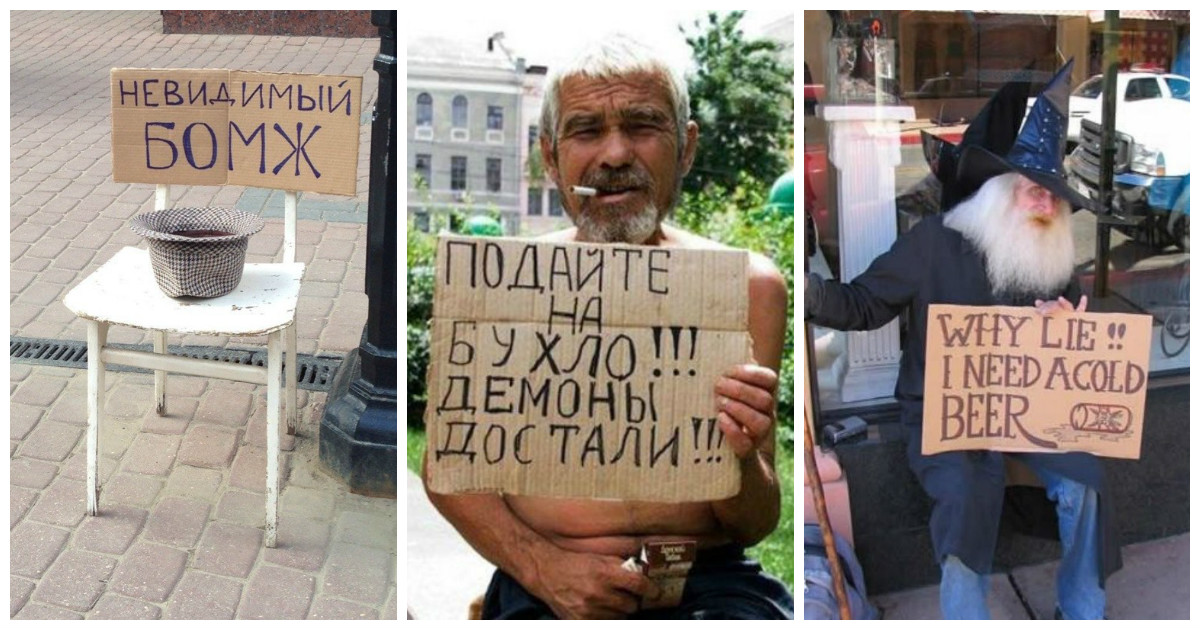 НЕВИДИМЫЙ
БОМЖ
ПОДАЙТЕ
НА
БУХЛО!!!
ДЕМОНЫ
ДОСТАЛИ!!!
WHY LIE !!
I NEED A COLD
BEER